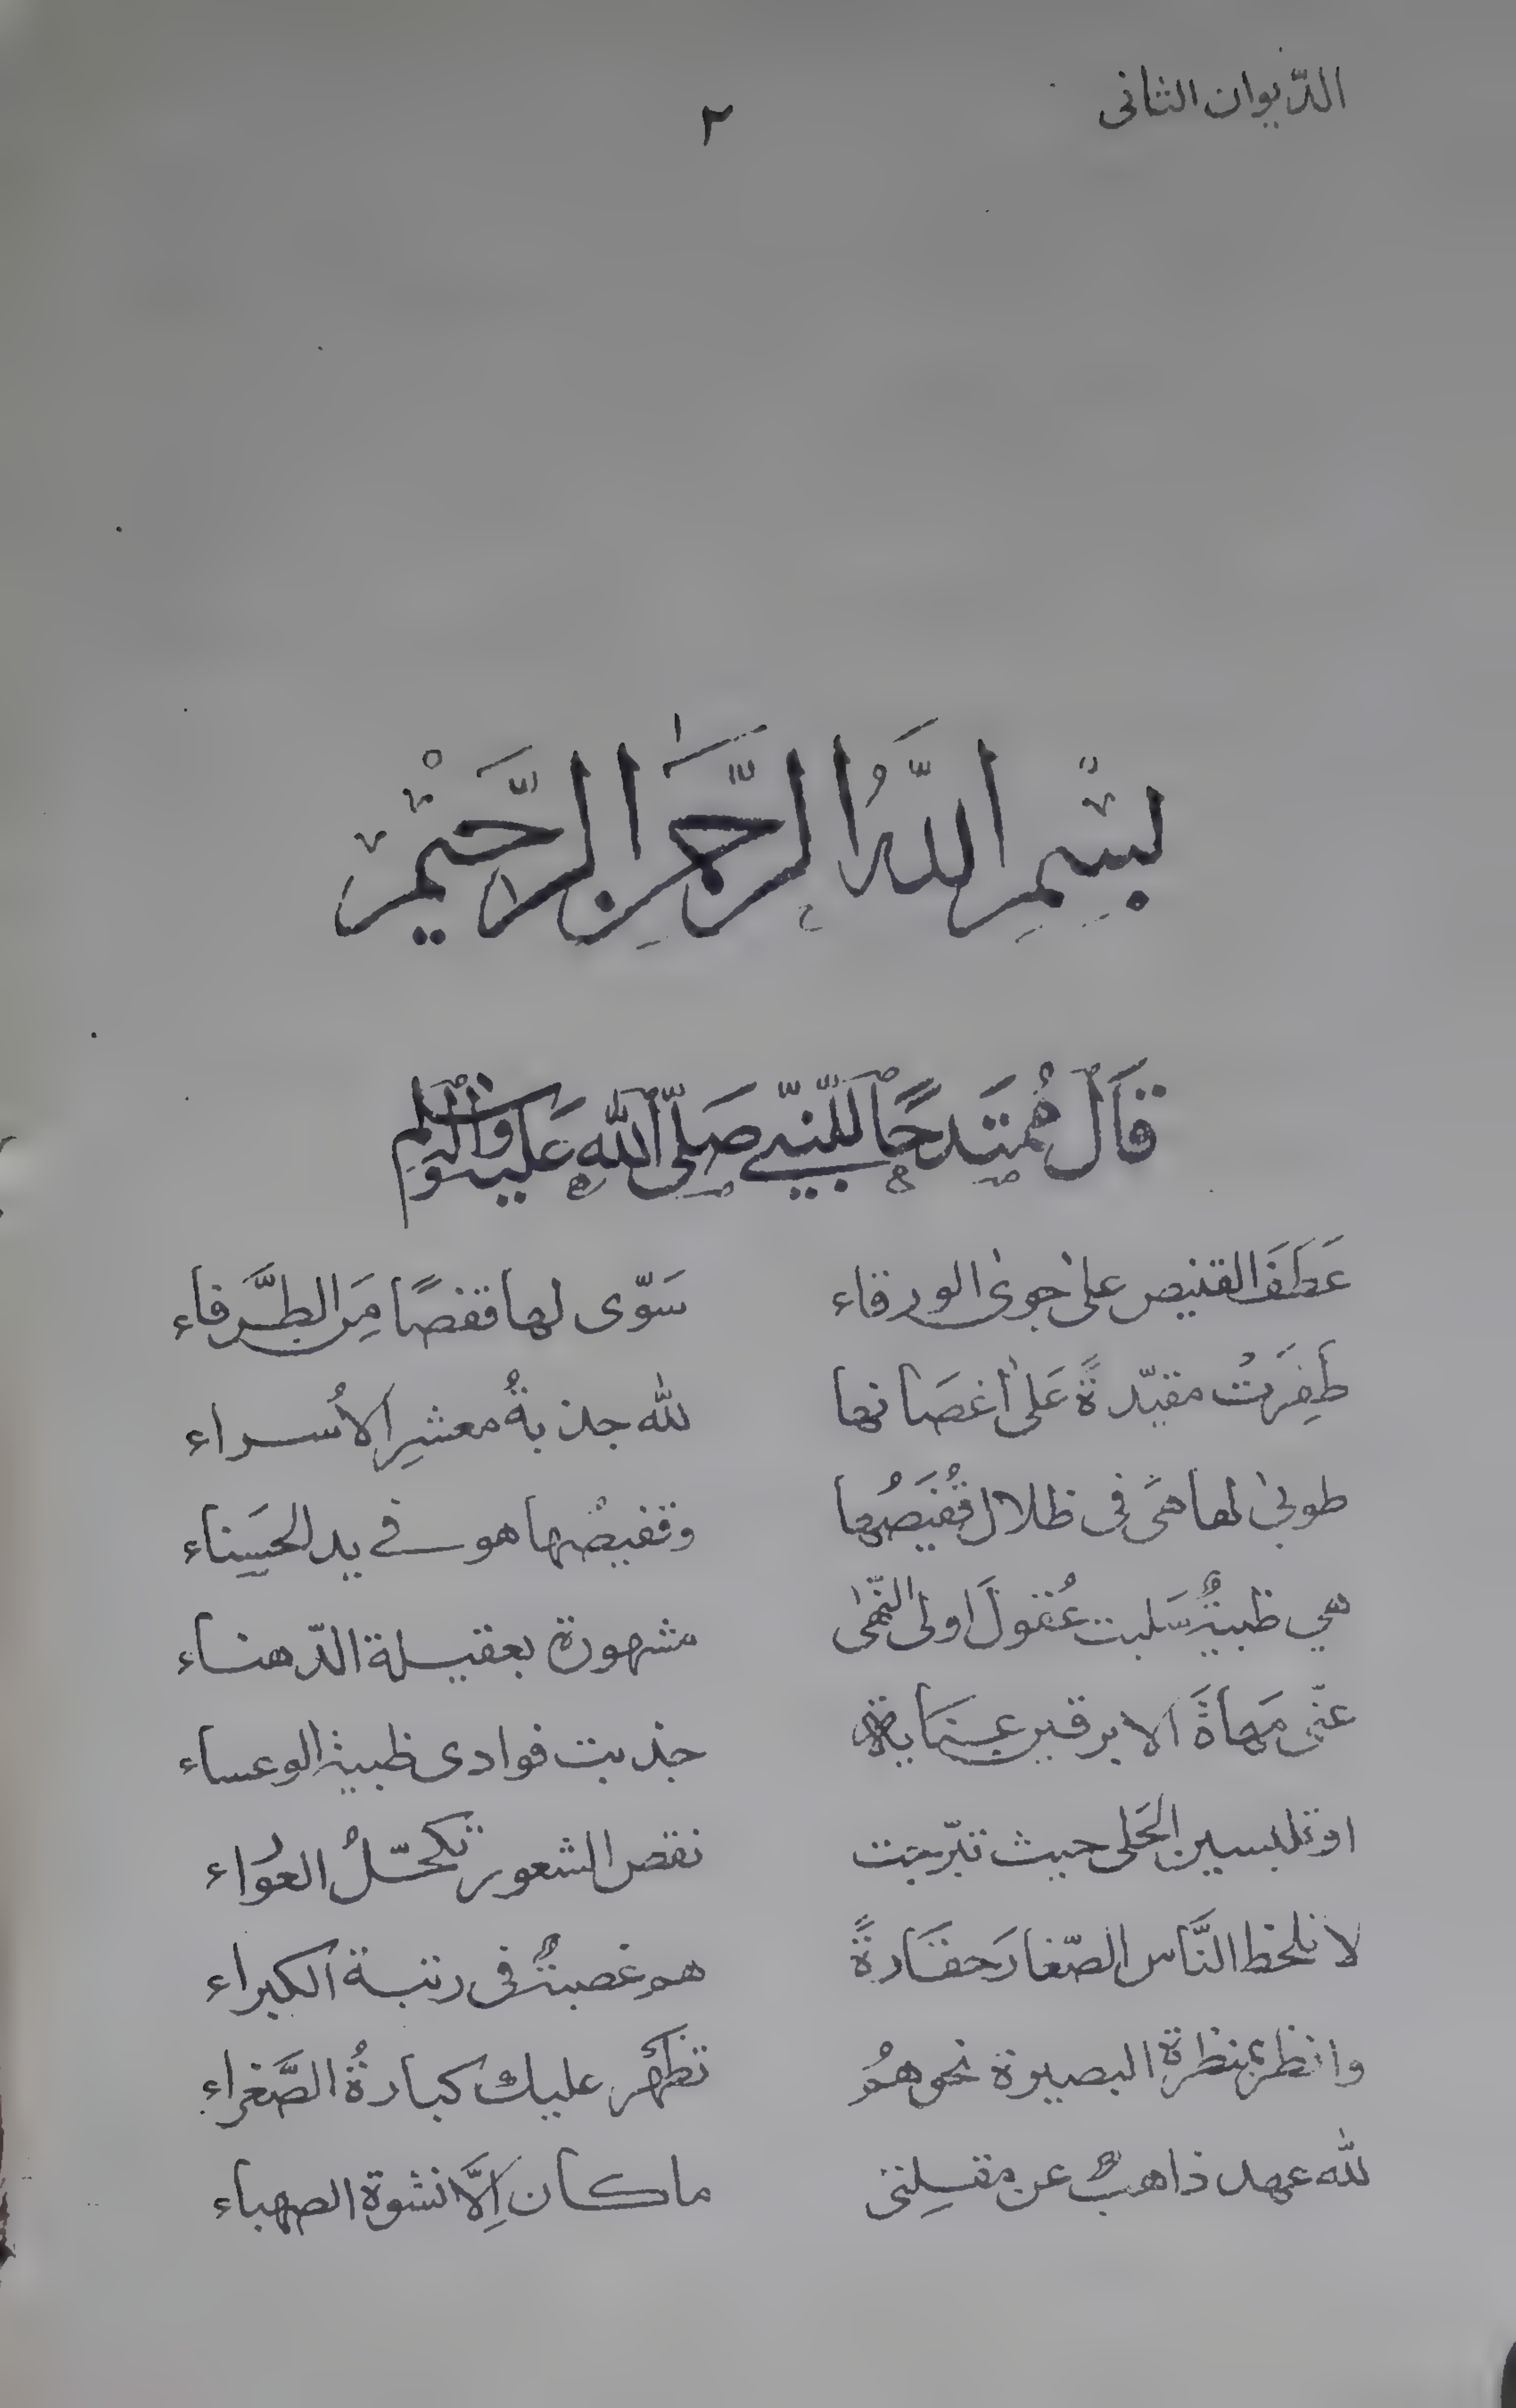 الدّيوان الثانى
٢
بِسْمِ اللَّهِ الرَّحْمٰنِ الرَّحِيْمِ
قَالَ مُمْتَدِحًا لِلنَّبِيِّ صَلَّى اللّٰهُ عَلَيْهِ وَآلِهِ وَسَلَّمَ
عَطَفَ القنيص على جوى الورقاء سَوّى لها قفصًا مِنَ الطَّرفاء
طَفِرَتْ مقيّدةً عَلىٰ أغصَانها لله جذبةُ معشرِ الأُسراء
طوبىٰ لها هىَ فى ظلال قُفَيصُها وقفيصُها هو فى يد الحسناء
هي ظبيةٌ سَلبت عُقولَ اولى النُّهٰى مشهورة بعقيلة الدّهناء
عنّى مَهاةَ الابرقين عِنَاية جذبت فوادى ظبية الوعساء
او تلبسين الحَلى حيث تبرّجت نقص الشعور تكحّلُ العَوْراء
لا تلحظ النَّاس الصّغارَ حقَارةً هو غصبةٌ فى رتبة الكبراء
وانظر بمنظرة البصيرة نحوهمُ تظهر عليك كبارةُ الصَّغراء
لله عهد ذاهبٌ عن مقلتى ما كان اِلَّا نشوة الصهباء